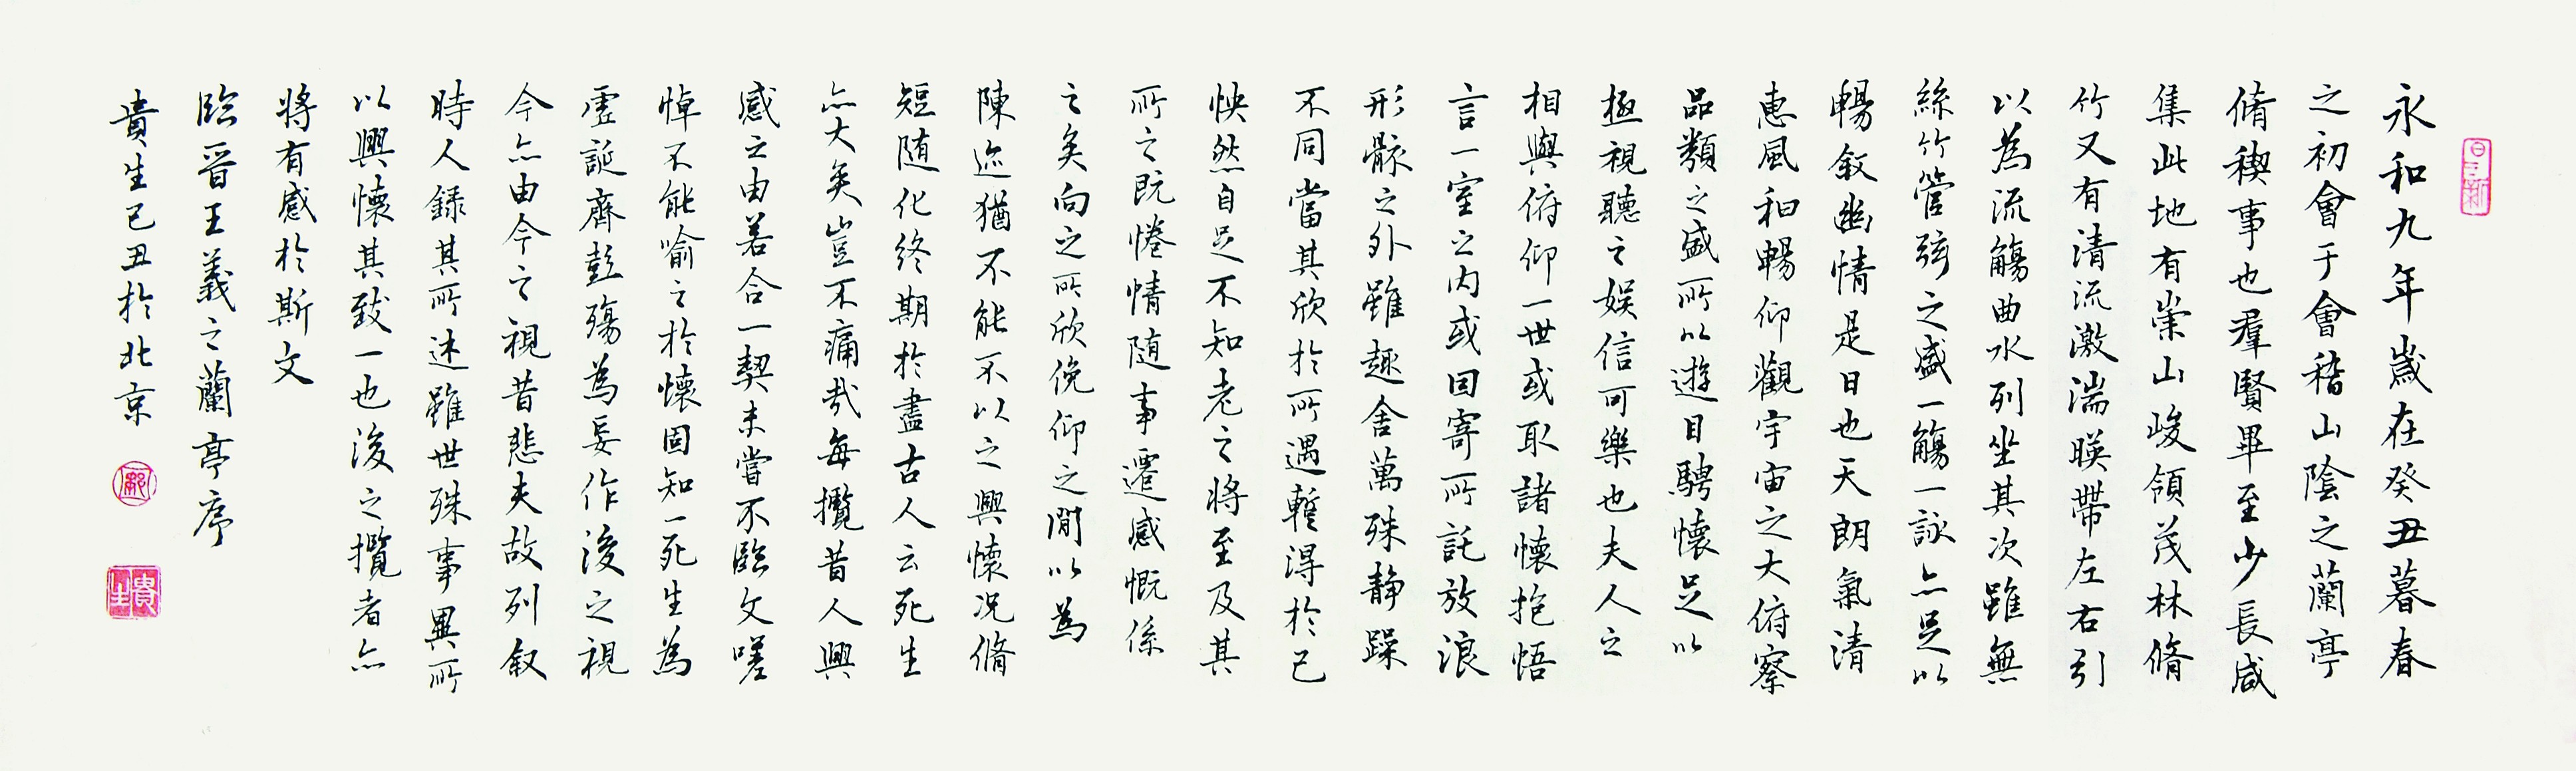 日日新
永和九年歲在癸丑暮春
之初會于會稽山陰之蘭亭
脩稧事也羣賢畢至少長咸
集此地有崇山峻領茂林脩
竹又有清流激湍暎帶左右引
以為流觴曲水列坐其次雖無
絲竹管弦之盛一觴一詠亦足以
暢叙幽情是日也天朗氣清
惠風和暢仰觀宇宙之大俯察
品類之盛所以遊目騁懷足以
極視聽之娱信可樂也夫人之
相與俯仰一世或取諸懷抱悟
言一室之内或因寄所託放浪
形骸之外雖趣舍萬殊静躁
不同當其欣於所遇蹔得於己
怏然自足不知老之將至及其
所之既惓情随事遷感慨係
之矣向之所欣俛仰之閒以為
陳迹猶不能不以之興懷况脩
短随化終期於盡古人云死生
亦大矣豈不痛哉每攬昔人興
感之由若合一契未嘗不臨文嗟
悼不能喻之於懷固知一死生為
虚誕齊彭殤為妄作後之視
今亦由今之視昔悲夫故列叙
時人録其所述雖世殊事異所
以興懷其致一也後之攬者亦
將有感於斯文
臨晋王義之蘭亭序
貴生己丑於北京
貴生